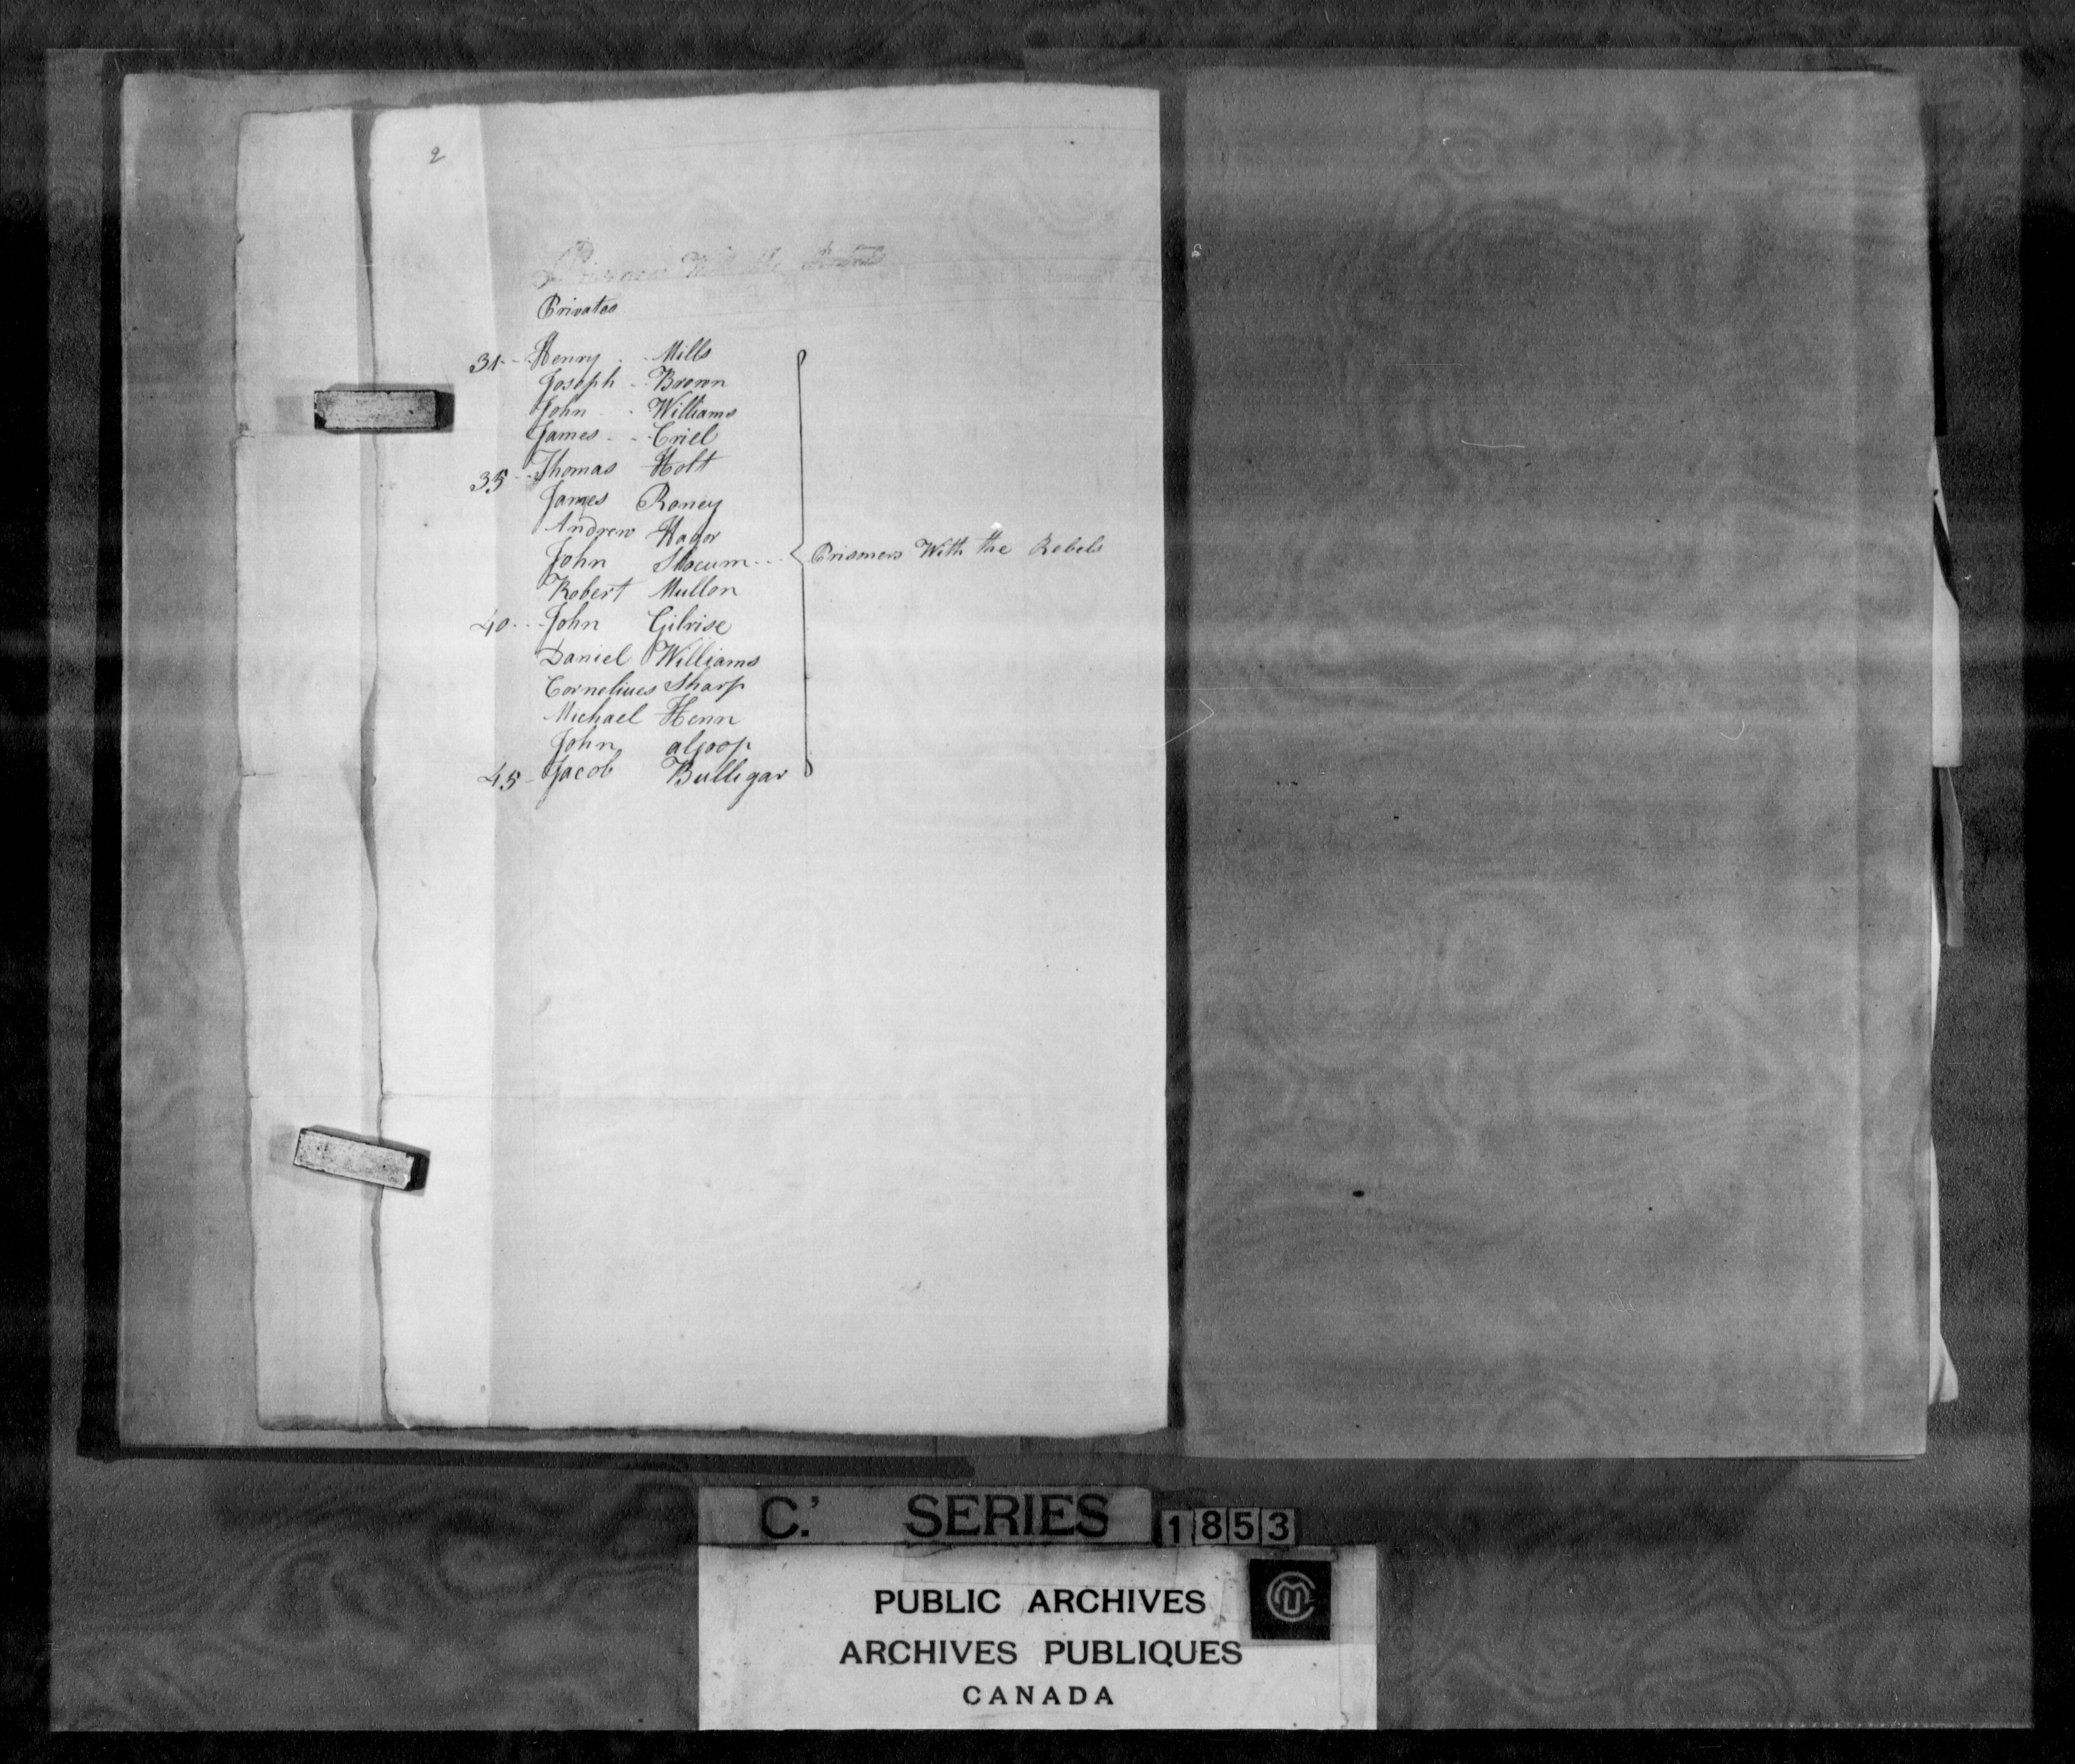 2
Privates
31 - Henry Mills
Joseph Brown
John Williams
James Criel
35 - Thomas Holt
James Roney
Andrew Hagor
John Slocum - - - Prisoners With the Rebels
Robert Mullon
40 - - John Gilrise
Daniel Williams
Corneliues Sharp
Michael Henn
John alsoop
45 - Jacob Bulligar
C.' SERIES 1853
PUBLIC ARCHIVES
ARCHIVES PUBLIQUES
CANADA